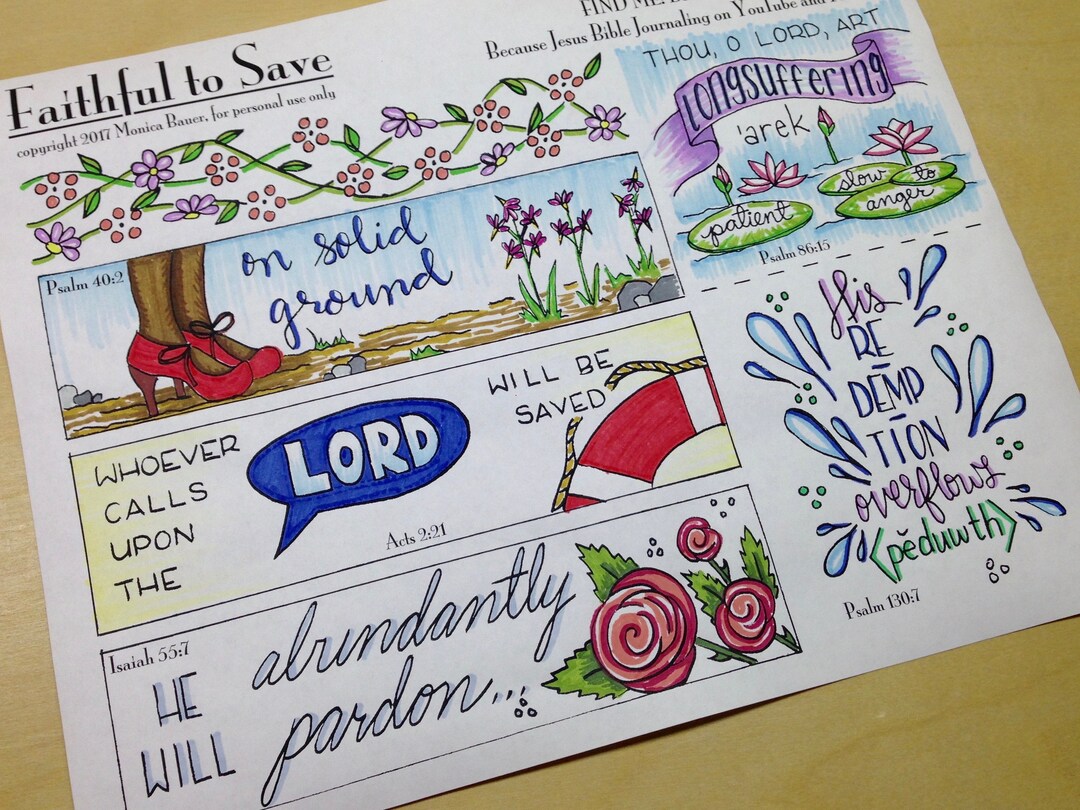 Faithful to Save
copyright 2017 Monica Bauer, for personal use only
FIND ME
Because Jesus Bible Journaling on YouTube and
Psalm 40:2
on solid
ground
THOU, O LORD, ART
LONGSUFFERING
'arek
patient
slow to
anger
Psalm 86:15
WHOEVER
CALLS
UPON
THE
LORD
WILL BE
SAVED
Acts 2:21
His
RE
DĒMP
TĪON
overflows
<pĕduwth>
Psalm 130:7
Isaiah 55:7
HE
WILL
abundantly
pardon...